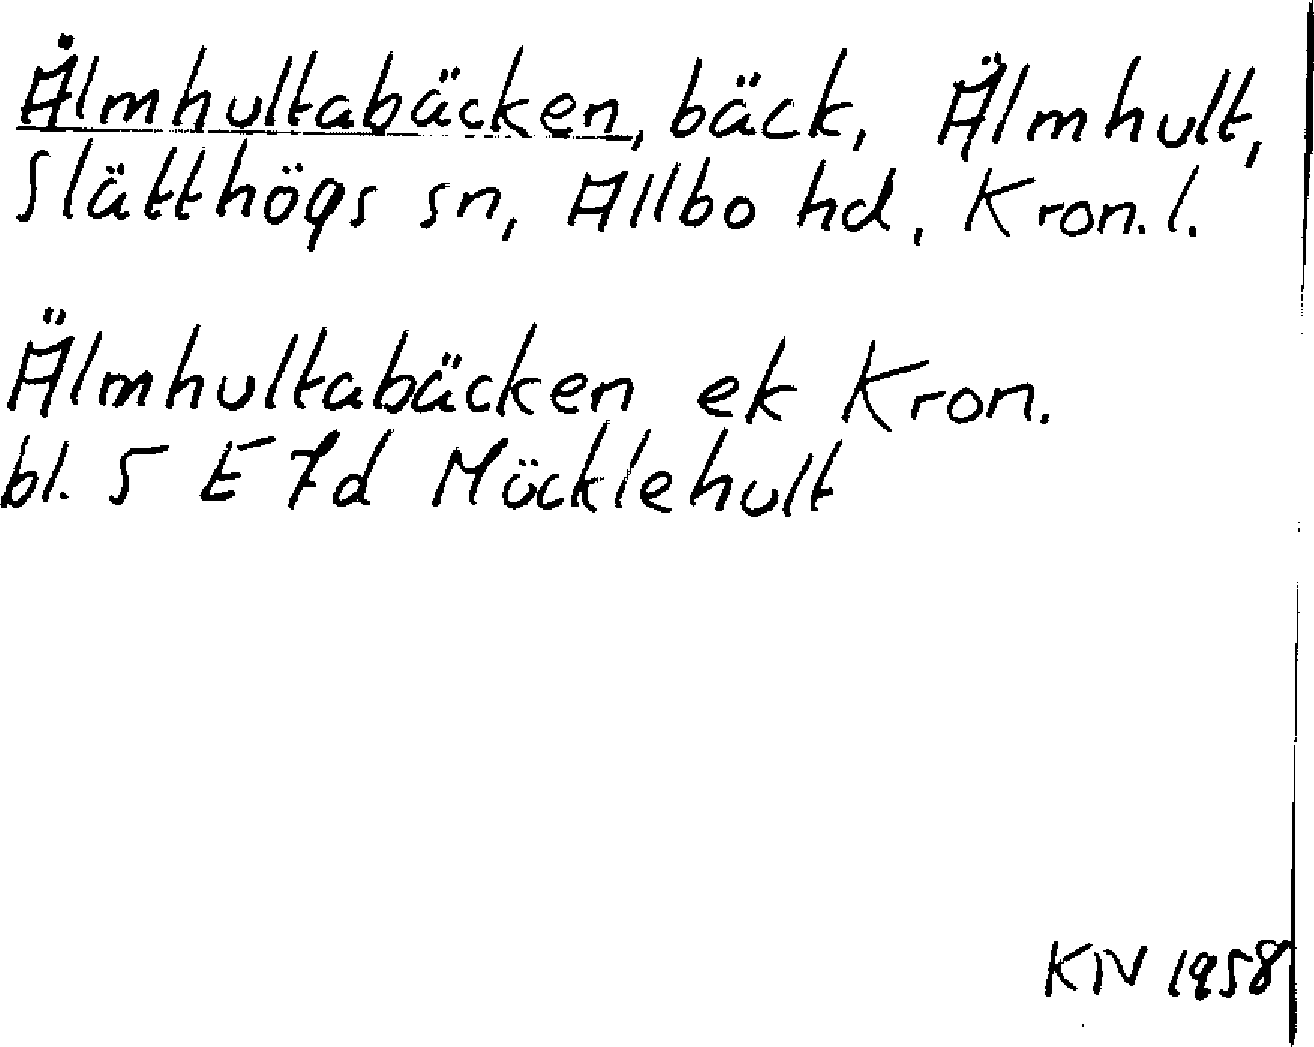 Älmhultabäcken, bäck, Älmhult,
Slätthögs sn, Allbo hd, Kron. l.
Älmhultabäcken ek Kron.
bl. 5 E 7d Möcklehult
KIV 1958